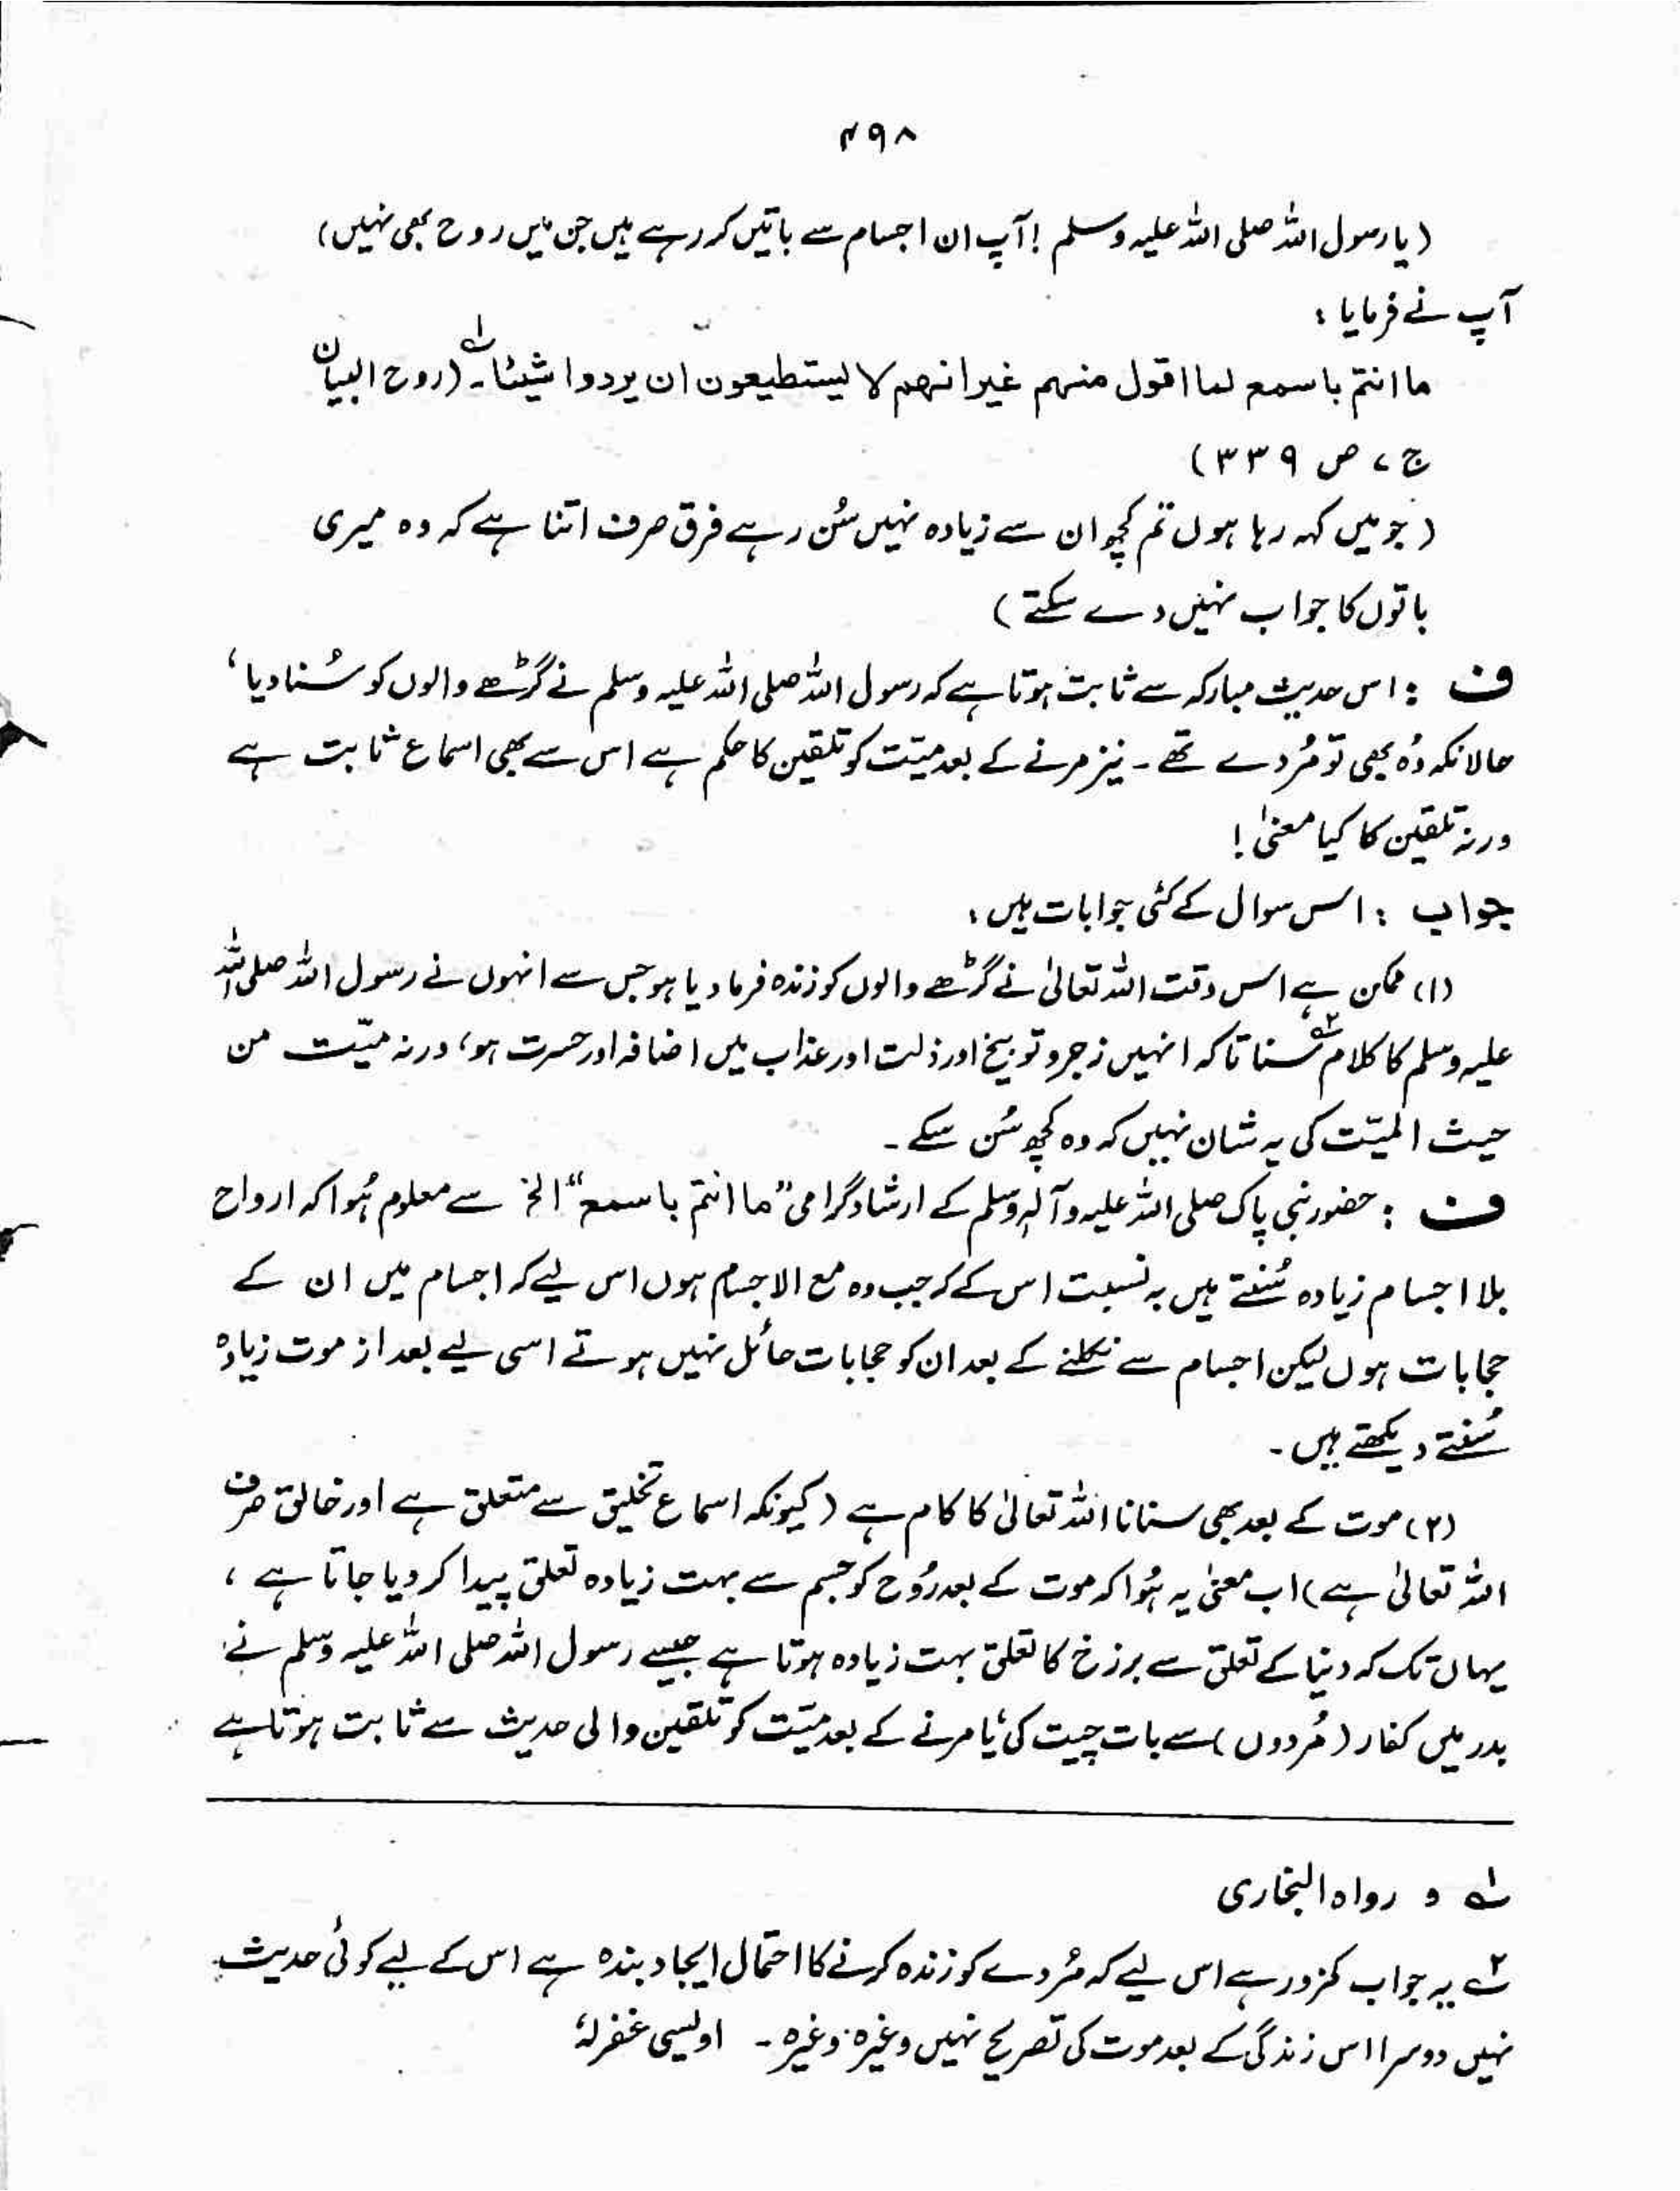 ۴۹۸
(یا رسول اللہ صلی اللہ علیہ وسلم! آپ ان اجسام سے باتیں کر رہے ہیں جن میں روح بھی نہیں)
آپ نے فرمایا:
ما انتم باسمع لما اقول منہم غیر انہم لا لیستطیعون ان یردوا شیئا۔ لہ (روح البیان
ج ۷ ص ۳۳۹)
(جو میں کہہ رہا ہوں تم کچھ ان سے زیادہ نہیں سُن رہے فرق صرف اتنا ہے کہ وہ میری
باتوں کا جواب نہیں دے سکتے)
ف : اس حدیث مبارکہ سے ثابت ہوتا ہے کہ رسول اللہ صلی اللہ علیہ وسلم نے گڑھے والوں کو سُنا دیا،
حالانکہ وُہ بھی تو مُردے تھے۔ نیز مرنے کے بعد میّت کو تلقین کا حکم ہے اس سے بھی اسماع ثابت ہے
ورنہ تلقین کا کیا معنیٰ!
جواب : اس سوال کے کئی جوابات ہیں:
(۱) ممکن ہے اس وقت اللہ تعالیٰ نے گڑھے والوں کو زندہ فرما دیا ہو جس سے انہوں نے رسول اللہ صلی اللہ
علیہ وسلم کا کلام ۲ہ سنا تاکہ انہیں زجر و توبیخ اور ذلت اور عذاب میں اضافہ اور حسرت ہو، ورنہ میّت من
حیث المیّت کی یہ شان نہیں کہ وہ کچھ سُن سکے۔
ف : حضور نبی پاک صلی اللہ علیہ وآلہٖ وسلم کے ارشاد گرامی "ما انتم باسمع" الخ سے معلوم ہُوا کہ ارواح
بلا اجسام زیادہ سُنتے ہیں بہ نسبت اس کے کہ جب وہ مع الاجسام ہوں اس لیے کہ اجسام میں ان کے
حجابات ہوں لیکن اجسام سے نکلنے کے بعد ان کو حجابات حائل نہیں ہوتے اسی لیے بعد از موت زیادہ
سُنتے دیکھتے ہیں۔
(۲) موت کے بعد بھی سنانا اللہ تعالیٰ کا کام ہے (کیونکہ اسماع تخلیق سے متعلق ہے اور خالق صرف
اللہ تعالیٰ ہے) اب معنیٰ یہ ہُوا کہ موت کے بعد رُوح کو جسم سے بہت زیادہ تعلق پیدا کر دیا جاتا ہے،
یہاں تک کہ دنیا کے تعلق سے برزخ کا تعلق بہت زیادہ ہوتا ہے جیسے رسول اللہ صلی اللہ علیہ وسلم نے
بدر میں کفار (مُردوں) سے بات چیت کی یا مرنے کے بعد میّت کو تلقین والی حدیث سے ثابت ہوتا ہے
لہ و رواہ البخاری
۲ہ یہ جواب کمزور ہے اس لیے کہ مُردے کو زندہ کرنے کا احتمال ایجاد بندہ ہے اس کے لیے کوئی حدیث
نہیں دوسرا اس زندگی کے بعد موت کی تصریح نہیں وغیرہ وغیرہ۔ اویسی غفرلہٗ